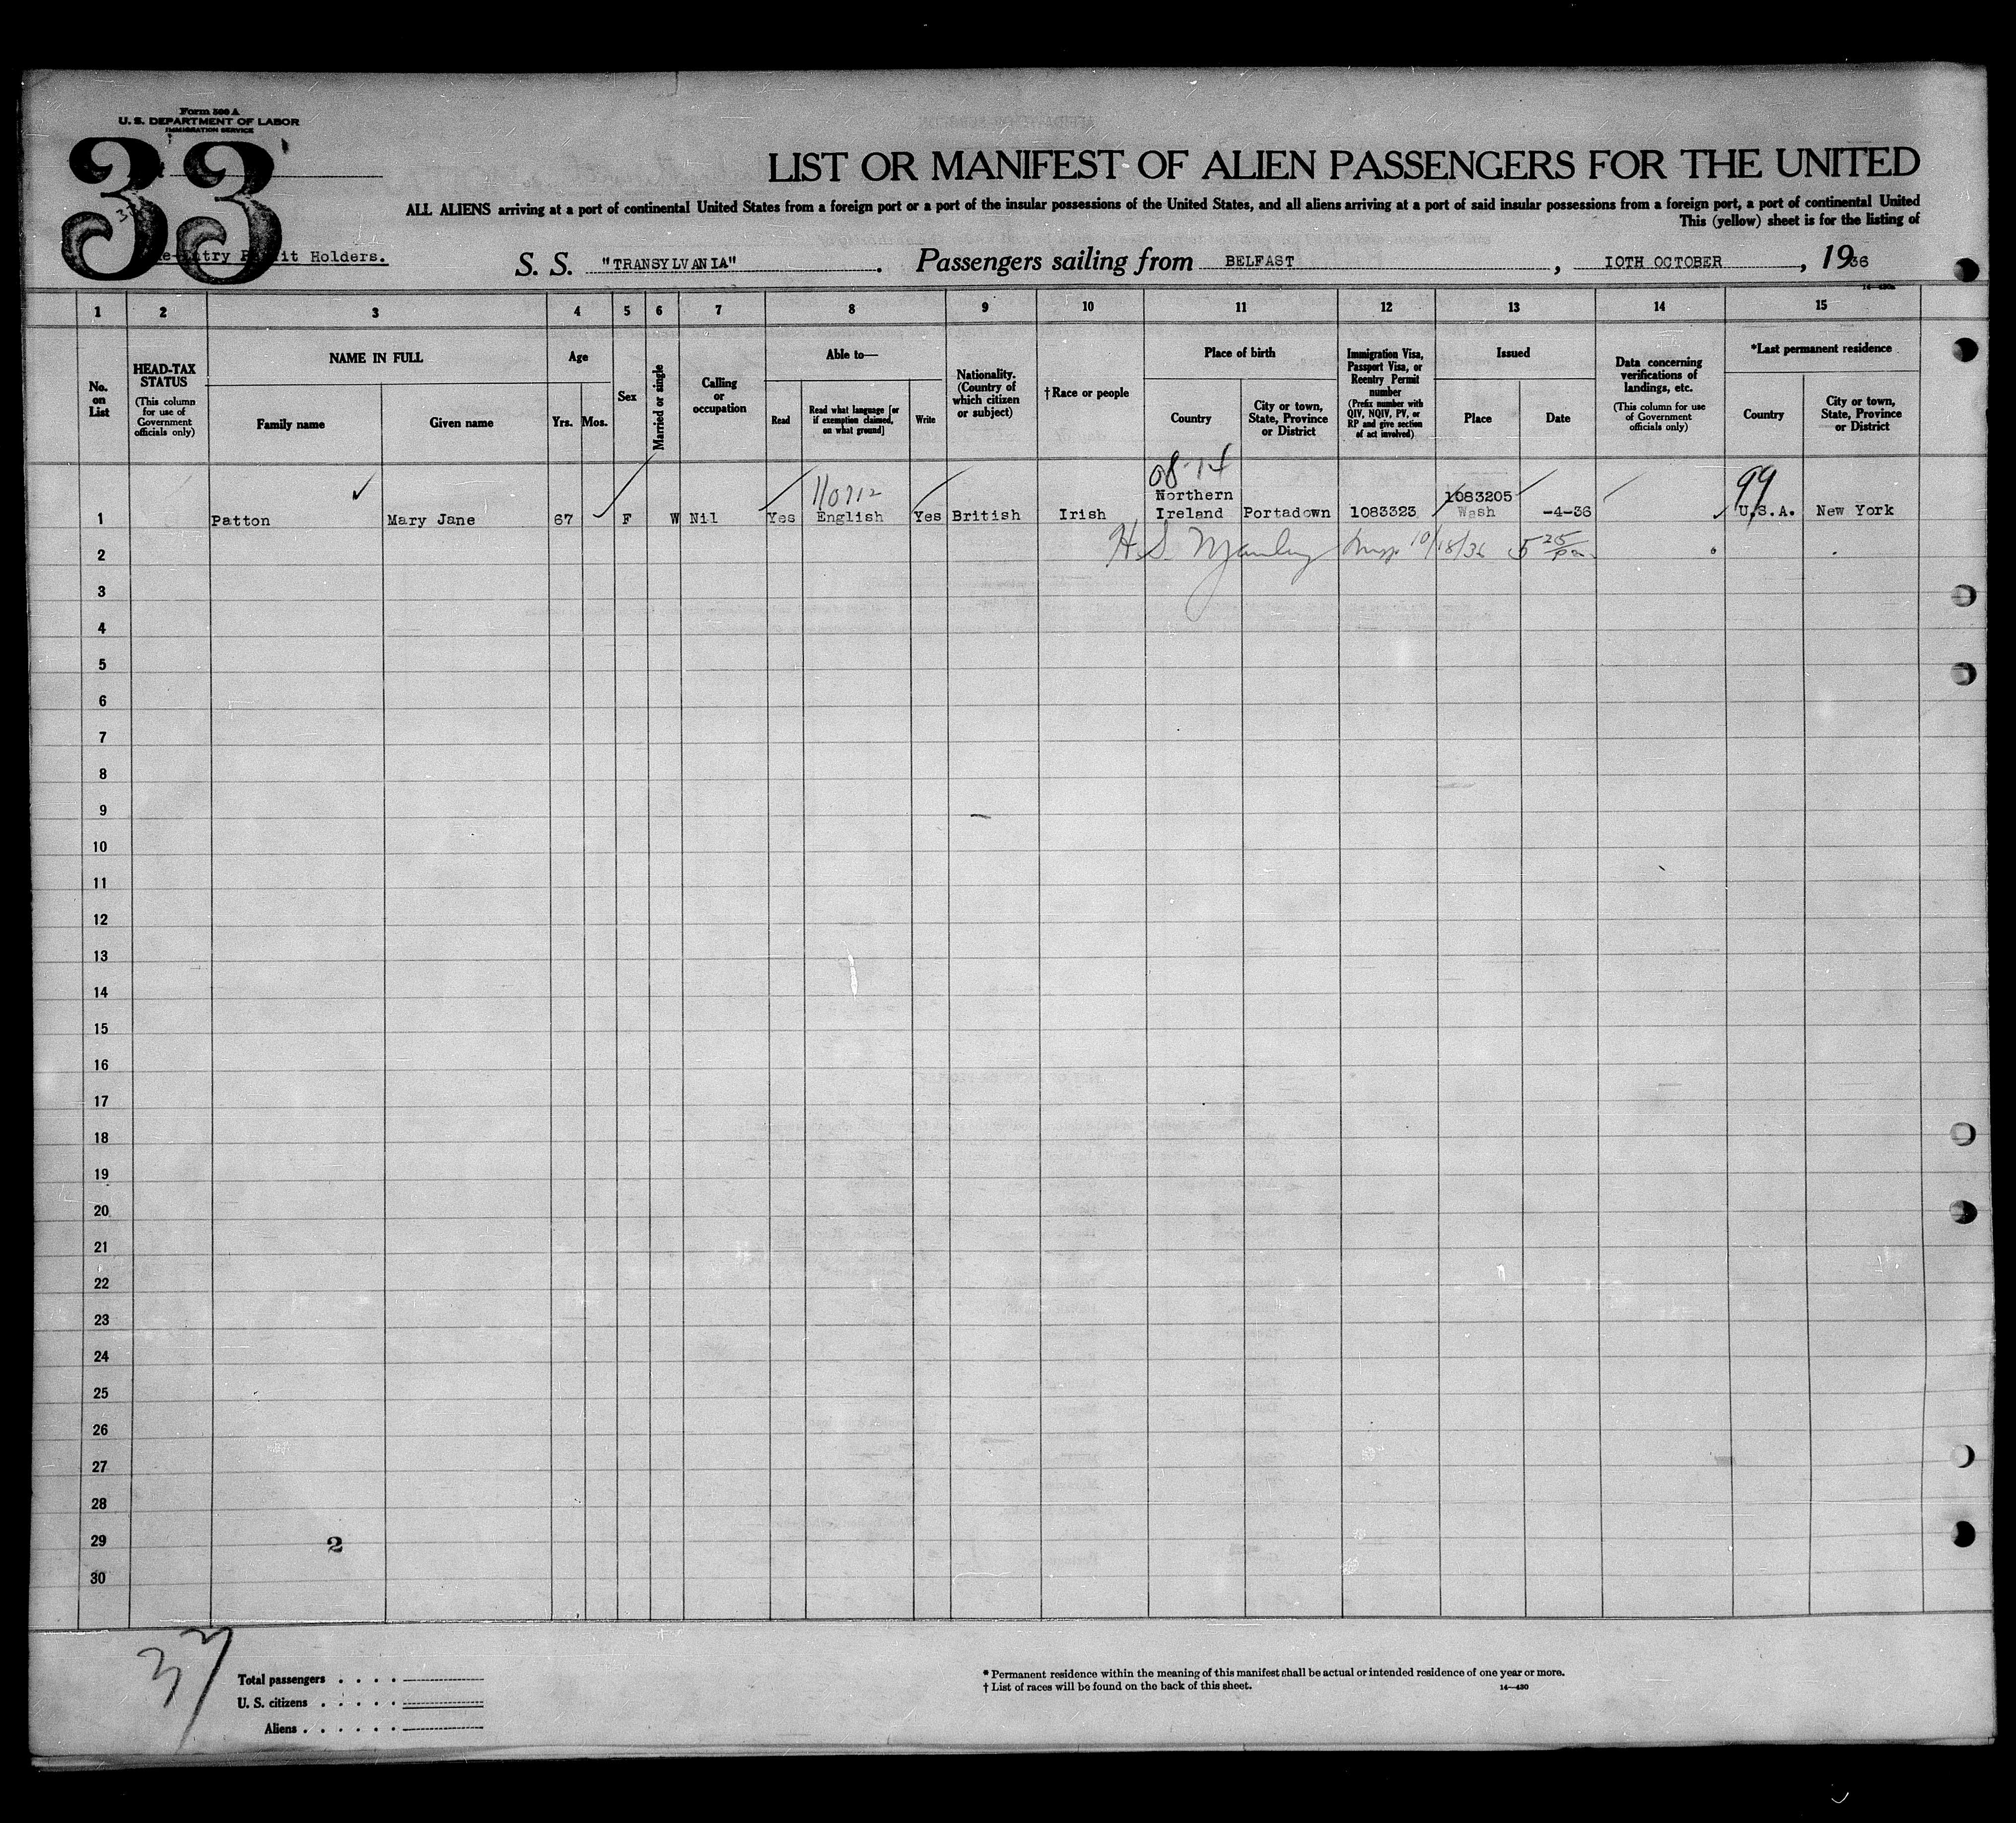 Form 500 A
U. S. DEPARTMENT OF LABOR
IMMIGRATION SERVICE
33
LIST OR MANIFEST OF ALIEN PASSENGERS FOR THE UNITED
ALL ALIENS arriving at a port of continental United States from a foreign port or a port of the insular possessions of the United States, and all aliens arriving at a port of said insular possessions from a foreign port, a port of continental United
This (yellow) sheet is for the listing of
Holders.
S. S. "TRANSYLVANIA". Passengers sailing from BELFAST, 10TH OCTOBER, 1936
1 2 3 4 5 6 7 8 9 10 11 12 13 14 15
No. on List
HEAD-TAX STATUS
(This column for use of Government officials only)
NAME IN FULL
Family name
Given name
Age
Yrs. Mos.
Sex
Married or single
Calling or occupation
Able to—
Read
Read what language [or if exemption claimed, on what ground]
Write
Nationality. (Country of which citizen or subject)
† Race or people
Place of birth
Country
City or town, State, Province or District
Immigration Visa, Passport Visa, or Reentry Permit number
(Prefix number with QIV, NQIV, PV, or RP and give section of act involved)
Issued
Place
Date
Data concerning verifications of landings, etc.
(This column for use of Government officials only)
*Last permanent residence
Country
City or town, State, Province or District
08-14
99
110712
Northern
1083205
1 Patton Mary Jane 67 F W Nil Yes English Yes British Irish Ireland Portadown 1083323 Wash -4-36 U.S.A. New York
2 H. S. 10/18/36 5 25
3
4
5
6
7
8
9
10
11
12
13
14
15
16
17
18
19
20
21
22
23
24
25
26
27
28
29 2
30
Total passengers . . . .
U. S. citizens . . . . .
Aliens . . . . . .
* Permanent residence within the meaning of this manifest shall be actual or intended residence of one year or more.
† List of races will be found on the back of this sheet.
14—430